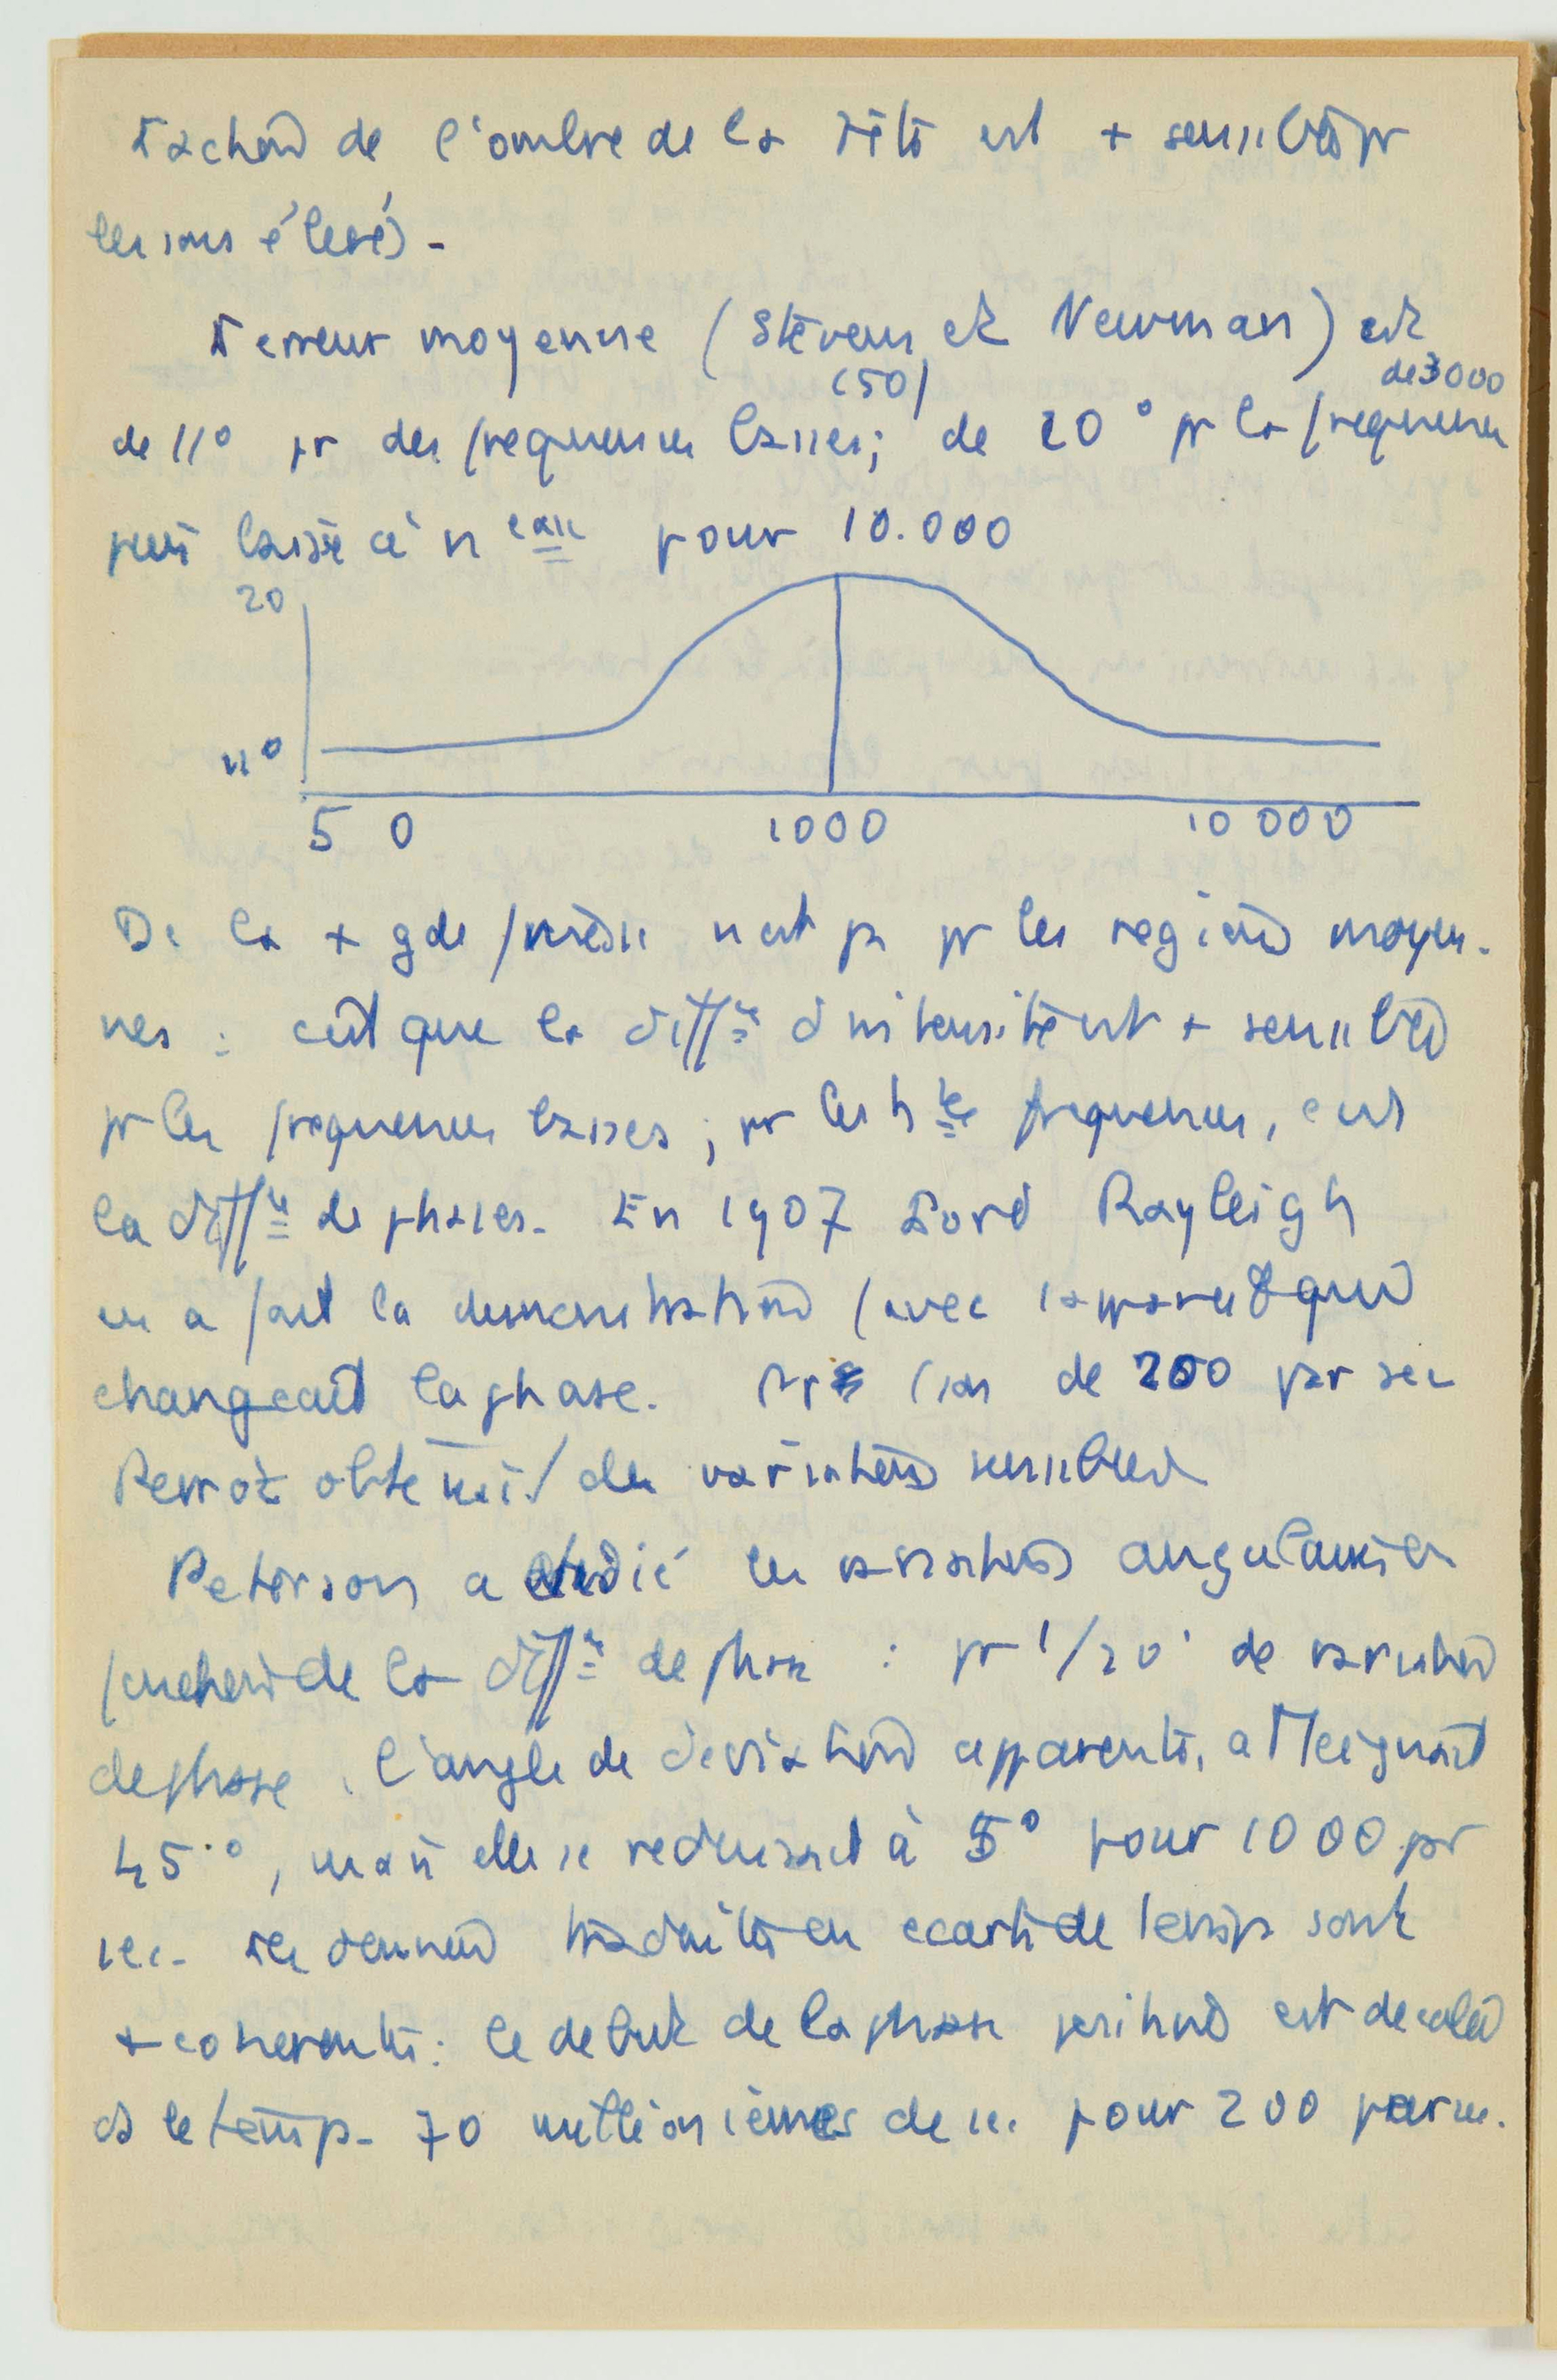 L'action de l'ombre de la tête est + sensible pr
les sons élevés -
L'erreur moyenne (Stevens et Newman) est
de 11° pr des frequences basses; (50) de 20° pr la frequence de 3000
puis baisse à nveau pour 10.000
20
11°
50 1000 10 000
De la + gde précis n'est pas pr les regions moyen-
nes : c'est que la diffce d'intensité est + sensible
pr les frequences basses ; pr les htes frequences, c'est
la diffce de phases. En 1907 Lord Rayleigh
en a fait la demonstration (avec appareil qui
changeait la phase. de 200 par sec
obtenait des variations sensibles
Peterson a étudié les variations angulaires en
fonction de la diffce de phase : pr 1/20 de variation
de phase, l'angle de deviation apparente, atteignait
45°, mais elle se reduisait à 5° pour 1000 pr
sec. Les données traduites en ecarts de temps sont
+ coherentes : le debut de la phase positive est decalé
ds le temps - 70 millionièmes de sec pour 200 par sec.